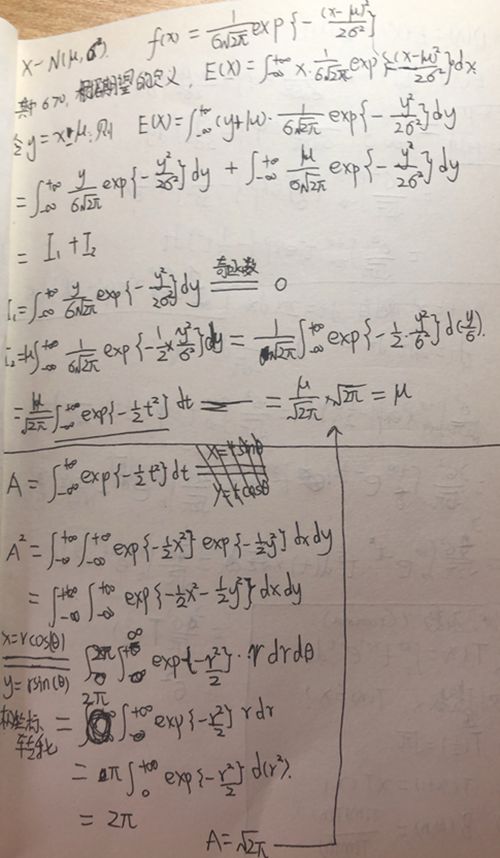 X~N(μ,σ²). f(x) = 1/(σ√2π) exp{-(x-μ)²/2σ²}
其中σ>0, 根据期望的定义, E(X)=∫_{-∞}^{+∞} x·1/(σ√2π) exp{-(x-μ)²/2σ²}dx
令y=x-μ, 则 E(X)=∫_{-∞}^{+∞}(y+μ)·1/(σ√2π) exp{-y²/2σ²}dy
=∫_{-∞}^{+∞} y/(σ√2π) exp{-y²/2σ²}dy + ∫_{-∞}^{+∞} μ/(σ√2π) exp{-y²/2σ²}dy
= I₁+I₂
I₁=∫_{-∞}^{+∞} y/(σ√2π) exp{-y²/2σ²}dy 奇函数 = 0
I₂=μ∫_{-∞}^{+∞} 1/(σ√2π) exp{-1/2×y²/σ²}dy = 1/√2π ∫_{-∞}^{+∞} exp{-1/2·y²/σ²}d(y/σ).
=μ/√2π ∫_{-∞}^{+∞} exp{-1/2t²}dt = μ/√2π × √2π = μ
A=∫_{-∞}^{+∞} exp{-1/2t²}dt
A²=∫_{-∞}^{+∞}∫_{-∞}^{+∞} exp{-1/2x²}exp{-1/2y²}dxdy
=∫_{-∞}^{+∞}∫_{-∞}^{+∞} exp{-1/2x²-1/2y²}dxdy
x=rcos(θ)
y=rsin(θ) ∫_0^{2π}∫_0^{∞} exp{-r²/2}·rdrdθ
极坐标转化 = 2π∫_0^{+∞} exp{-r²/2}rdr
= π∫_0^{+∞} exp{-r²/2}d(r²).
= 2π
A=√2π